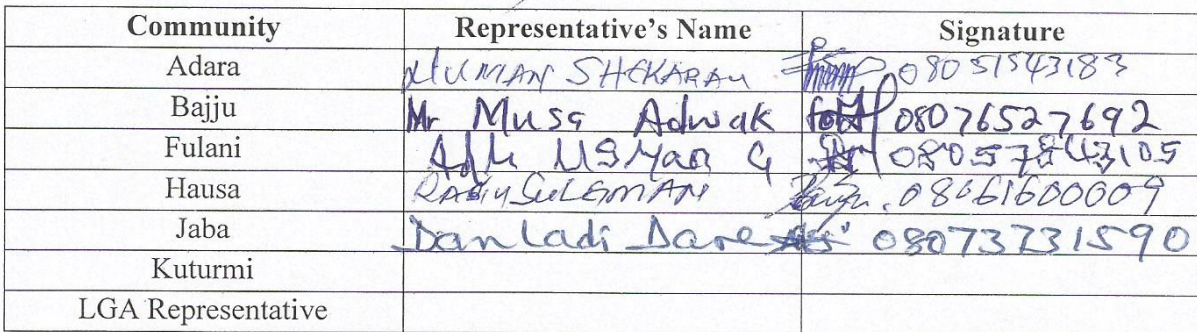 Community Representative's Name Signature
Adara SHEKARAU 08051543183
Bajju Mr Musa Adwak 08076527692
Fulani 08057843105
Hausa RABIU SULEMAN 08061600009
Jaba Danladi Dare 08073731590
Kuturmi
LGA Representative